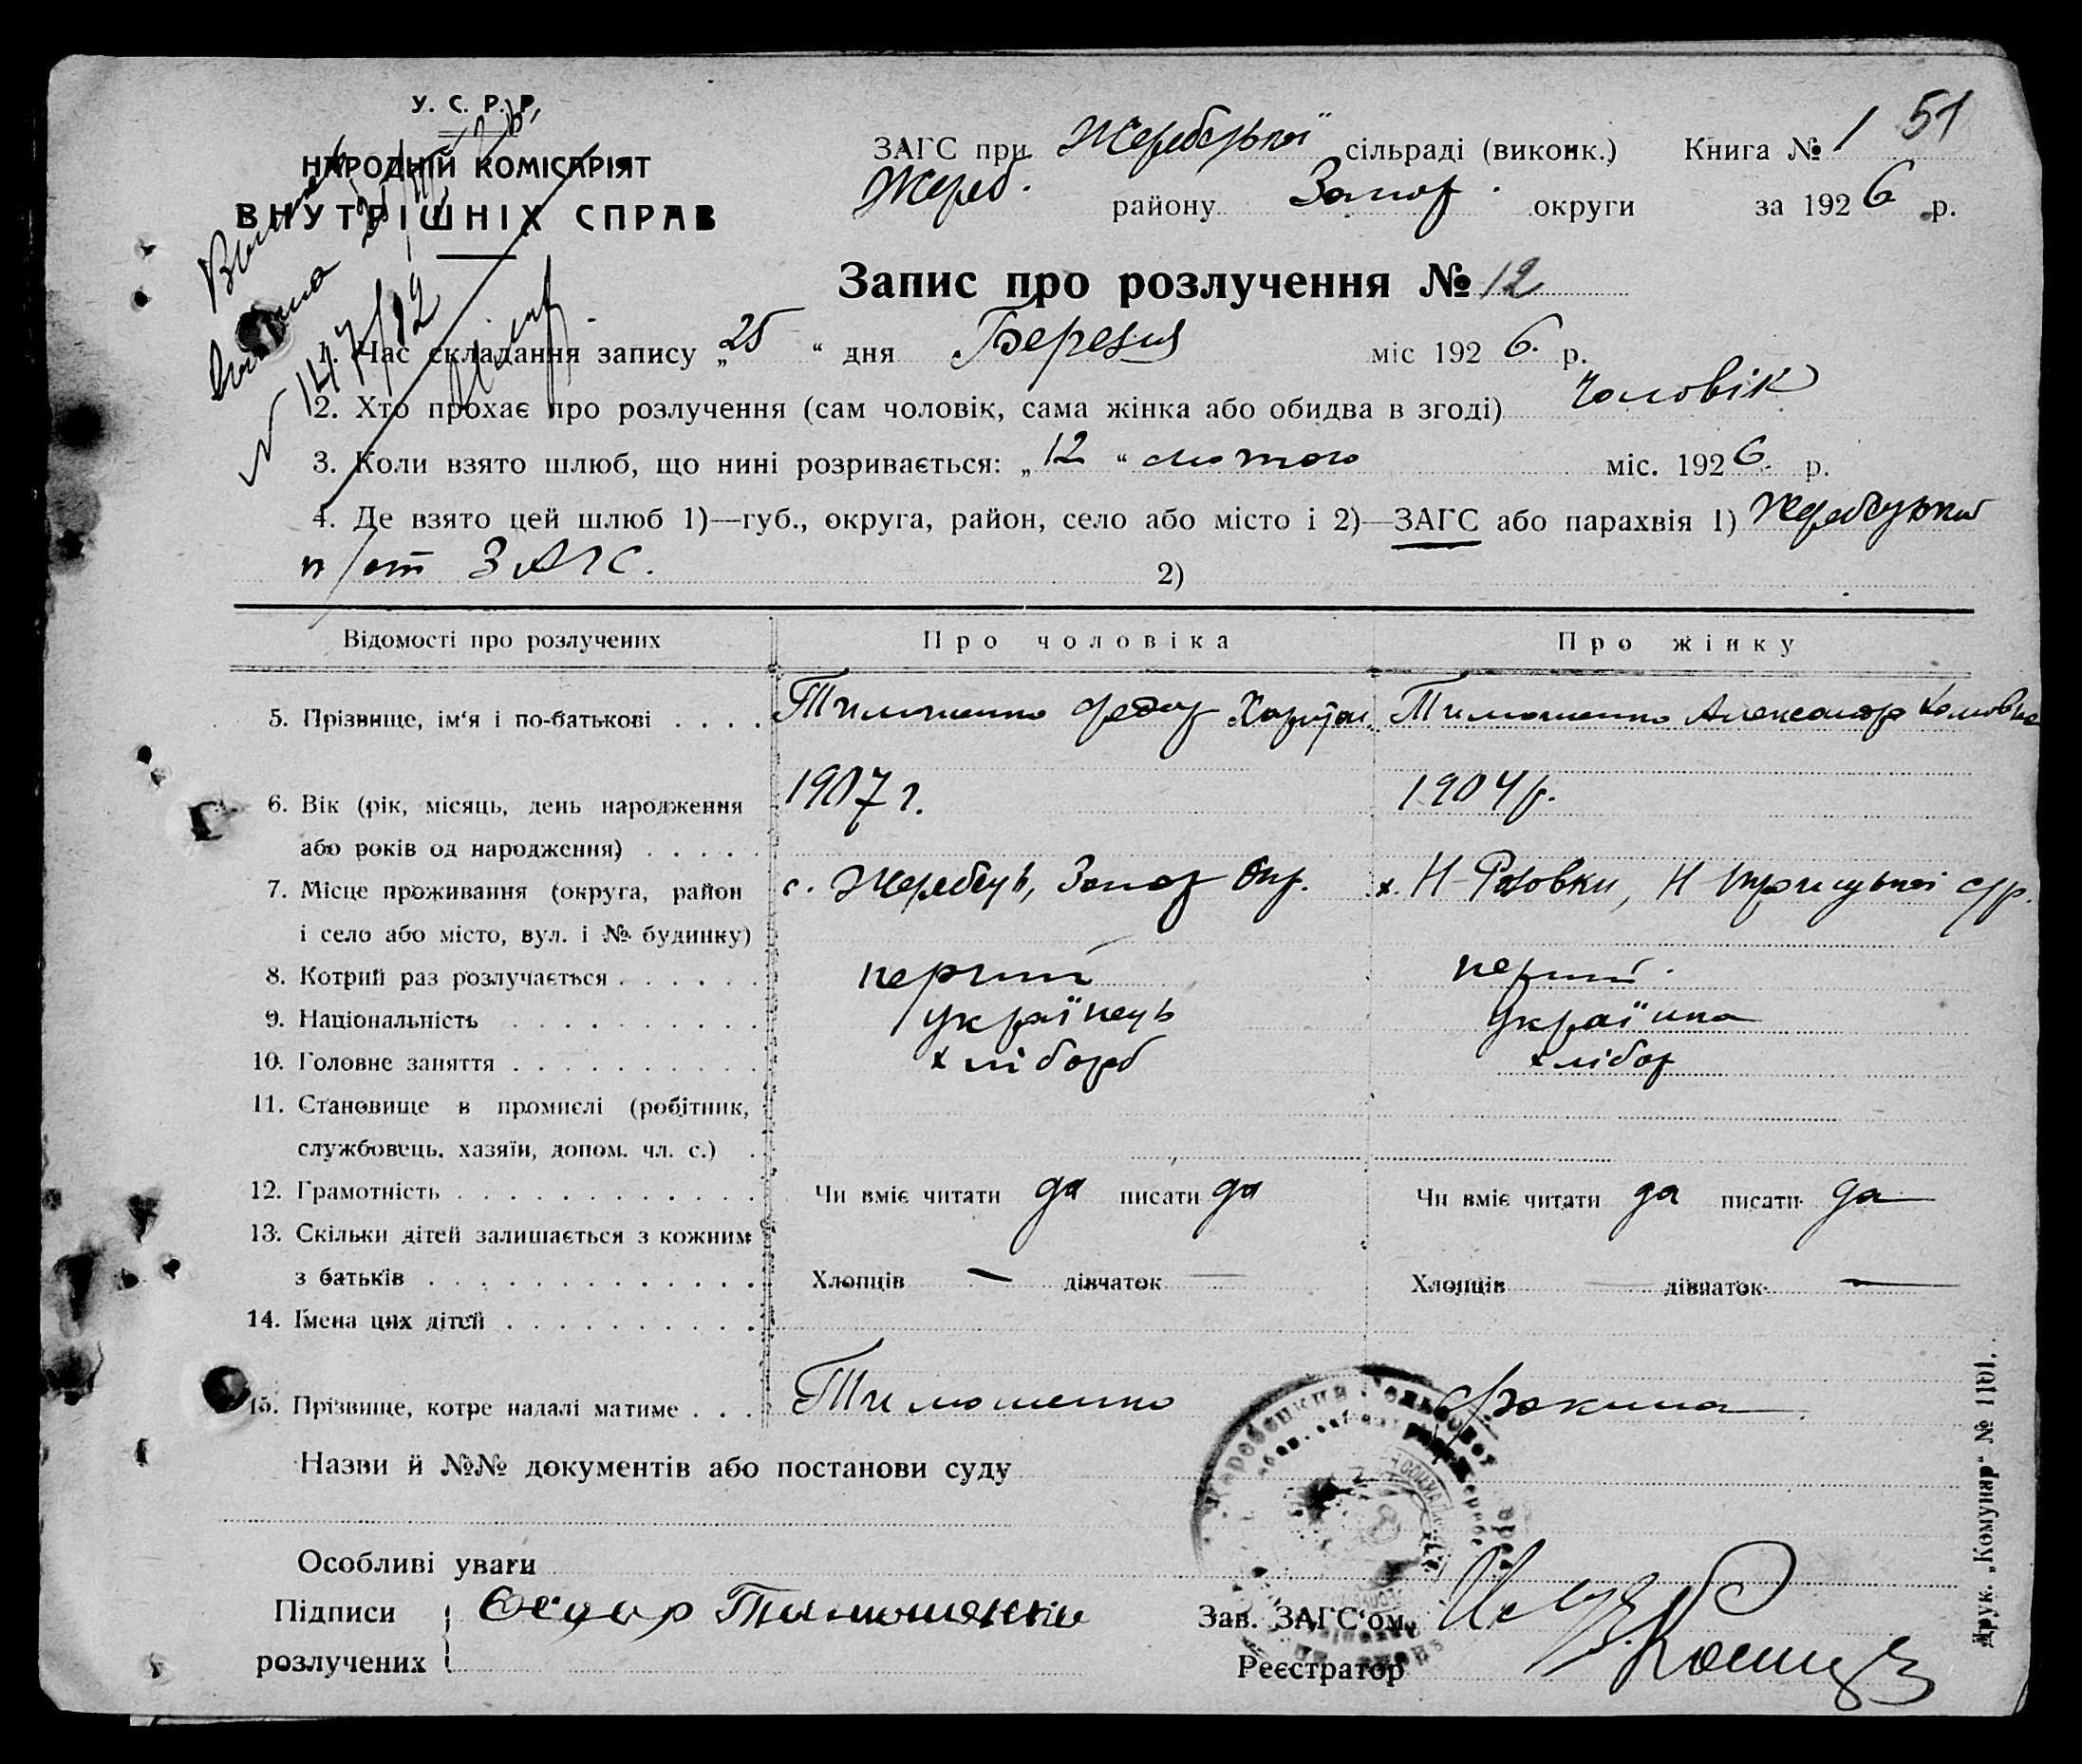 У. С. Р. Р.
НАРОДНІЙ КОМІСАРІЯТ
ВНУТРІШНІХ СПРАВ
51
ЗАГС при Жеребецької сільраді (виконк.) Книга № 1
Жереб. району Запор. округи за 1926 р.
Запис про розлучення № 12
№ 147/12
1. Час складання запису „25“ дня Березня міс 1926. р.
2. Хто прохає про розлучення (сам чоловік, сама жінка або обидва в згоді) Чоловік
3. Коли взято шлюб, що нині розривається: „12“ лютого міс. 1926. р.
4. Де взято цей шлюб 1)—губ., округа, район, село або місто і 2)—ЗАГС або парахвія 1) Жеребецький
п/от ЗАГС. 2)
Відомості про розлучених Про чоловіка Про жінку
5. Прізвище, ім‘я і по-батькові . . . . Тимошенко Федор Харитон. Тимошенко Александра
6. Вік (рік, місяць, день народження 1907 г. 1904 р.
або років од народження) . . . . .
7. Місце проживання (округа, район с. Жеребець, Запор Окр. х. Н- Н- с/р.
і село або місто, вул. і № будинку)
8. Котрий раз розлучається . . . . . . перший перший.
9. Національність . . . . . . . . . . українець Українка
10. Головне заняття . . . . . . . . . . хлібороб хлібор
11. Становище в промислі (робітник,
службовець, хазяїн, допом. чл. с.) .
12. Грамотність . . . . . . . . . . . . Чи вміє читати да писати да Чи вміє читати да писати да
13. Скільки дітей залишається з кожним
з батьків . . . . . . . . . . . . . Хлопців — дівчаток — Хлопців — дівчаток —
14. Імена цих дітей . . . . . . . . . .
15. Прізвище, котре надалі матиме . . . Тимошенко Фокина
Назви й №№ документів або постанови суду
Особливі уваги
Підписи Федор Тимошенко Зав. ЗАГС‘ом
розлучених Реєстратор
Друк. „Комунар“ № 1101.